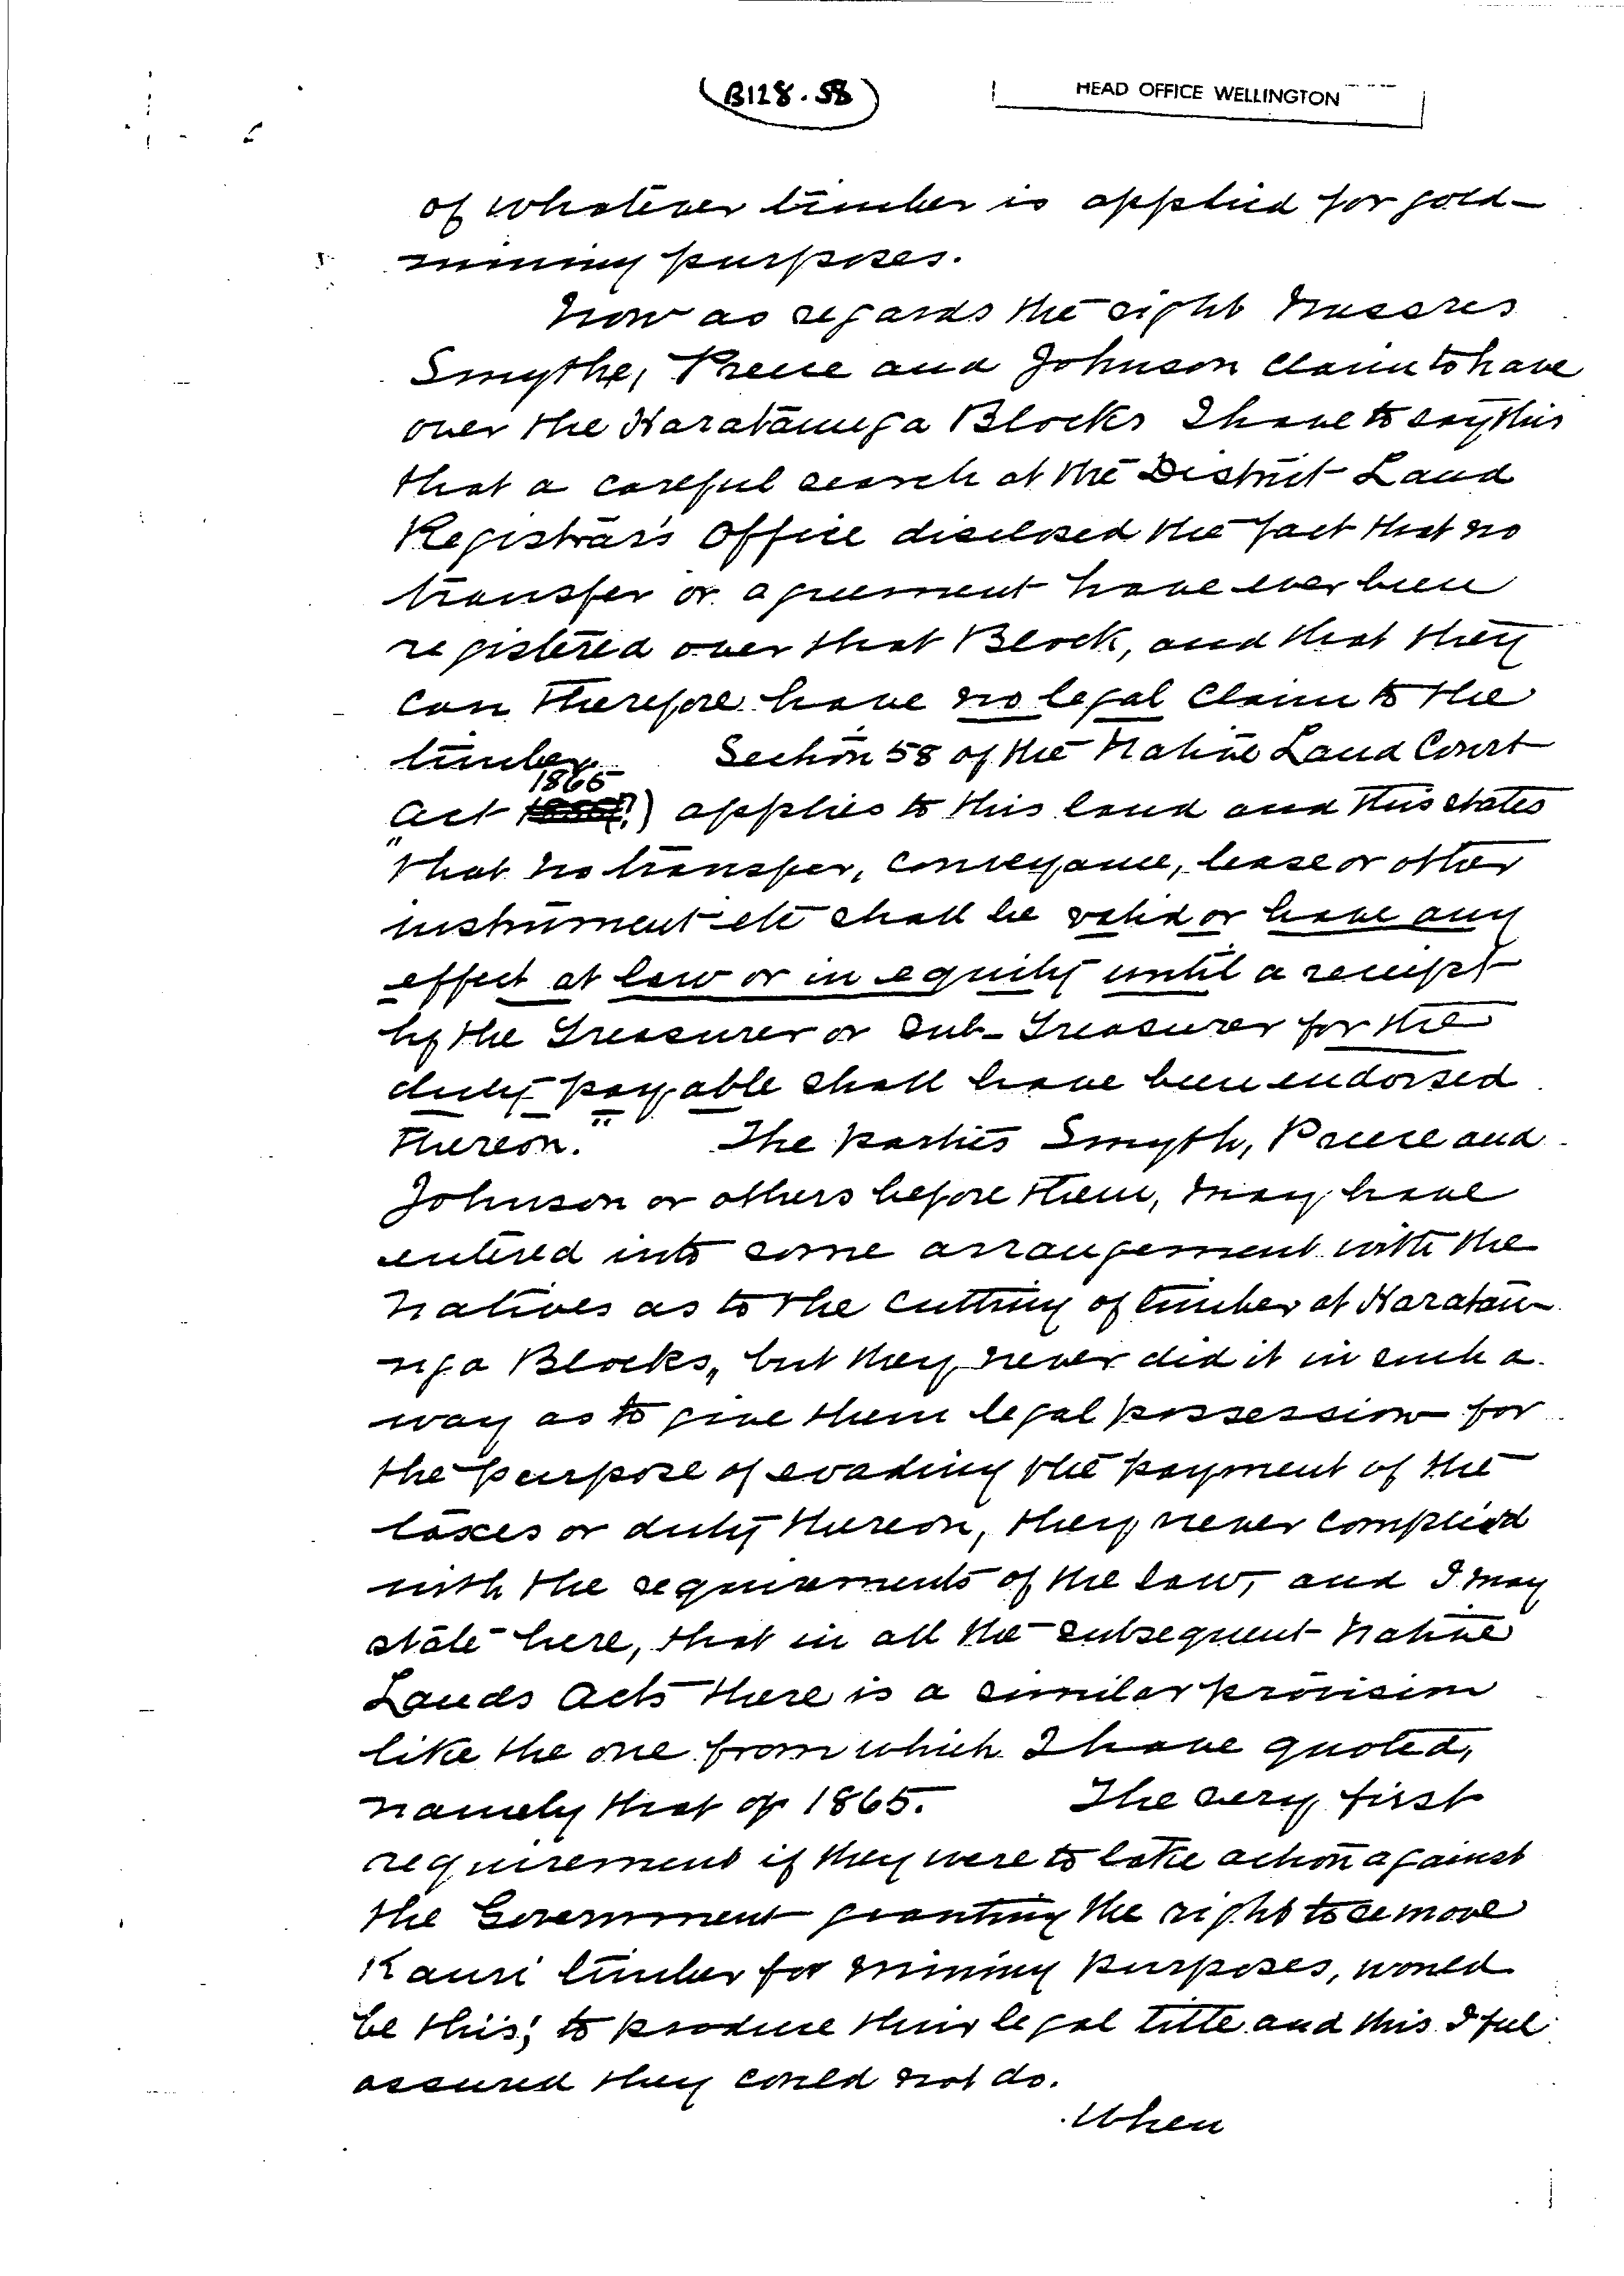 (B128.58)
HEAD OFFICE WELLINGTON
of whatever timber is applied for gold-
mining purposes.
Now as regards the right Messres
Smythe, Preece and Johnson claim to have
over the Haratāunga Blocks I have to say this
that a careful search at the District Land
Registrar's Office disclosed the fact that no
transfer or agreement have ever been
registered over that Block, and that they
can therefore have no legal claim to the
timber. Section 58 of the Native Land Court
1865
Act applies to this land and this states
"that no transfer, conveyance, lease or other
instrument etc shall be valid or have any
effect at law or in equity until a receipt
by the Treasurer or Sub-Treasurer for the
duty payable shall have been endorsed
thereon." The parties Smyth, Preece and
Johnson or others before them, may have
entered into some arrangement with the
natives as to the cutting of timber at Haratau-
nga Blocks, but they never did it in such a
way as to give them legal possession for
the purpose of evading the payment of the
taxes or duty thereon, they never complied
with the requirements of the law, and I may
state here, that in all the subsequent Native
Lands Acts there is a similar provision
like the one from which I have quoted,
namely that of 1865. The very first
requirement if they were to take action against
the Government granting the right to remove
Kauri timber for mining purposes, would
be this; to produce their legal title and this I feel
assured they could not do.
When